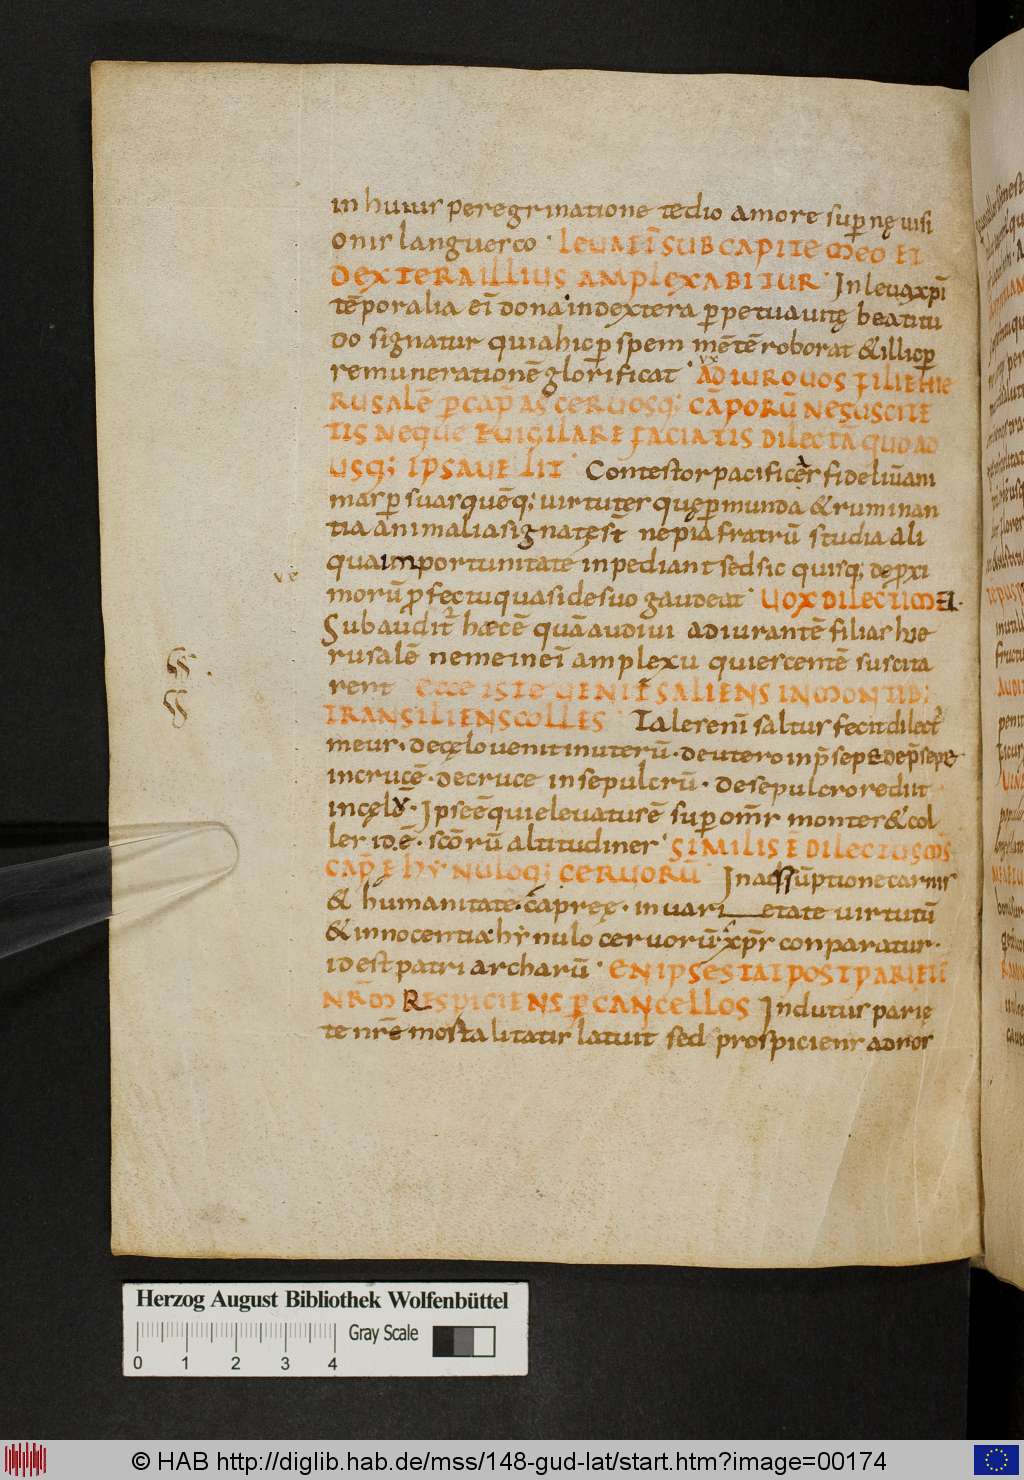 in huius peregrinatione tedio amore supernę uisi
onis languesco · LEVA EI SUB CAPITE MEO ET
DEXTERA ILLIUS AMPLEXABITUR · In leua xp̄i
tēporalia ei dona in dextera ꝑpetua uitę beatitu
do signatur quia hic ꝑ spem mētē roborat & illic ꝑ
remunerationē glorificat · ADIURO UOS FILIE HIE
vx
RUSALĒ ꝑ CAPREAS CERUOSQ; CAPORŪ NE SUSCITE
TIS NEQUE EUIGILARE FACIATIS DILECTĀ QUOAD
USQ; IPSA UELIT · Contestor pacificēs fideliū ani
mas ꝑ suas quēq; uirtutes quę ꝑ munda & ruminan
tia animalia signatę st̄ ne pia fratrū studia ali
qua importunitate inpediant sed sic quisq; de proxi
ve
morū ꝓfectu quasi de suo gaudeat · UOX DILECTI MEI ·
Subauditr̄ hæc ē quā audiui adiurantē filias hie
rusalē ne me in ei amplexu quiescentē suscita
rent ECCE ISTE UENIT SALIENS IN MONTIB;
TRANSILIENS COLLES · Tales eni saltus fecit dilect̄
meus · de cęlo uenit in uterū · de utero in p̄sepe de p̄sepe
in crucē · de cruce in sepulcrū · de sepulcro rediit
in cęlv̄ · Ipse ē qui eleuatus ē super om̄s montes & col
les id ē · sc̄orū altitudines · SIMILIS Ē DILECTUS M̄S
CAPREE HYNULOQ; CERUORŪ In assūptione carnis
& humanitate · capreę · in uari etate uirtutū
& innocentiæ hynulo ceruorū xp̄s conparatur ·
id est patriarcharū · EN IPSE STAT POST PARIETĒ
NR̄M RESPICIENS ꝑ CANCELLOS Indutus parię
te nr̄e mortalitatis latuit sed prospiciens ad nos
Herzog August Bibliothek Wolfenbüttel
Gray Scale
0 1 2 3 4
© HAB http://diglib.hab.de/mss/148-gud-lat/start.htm?image=00174